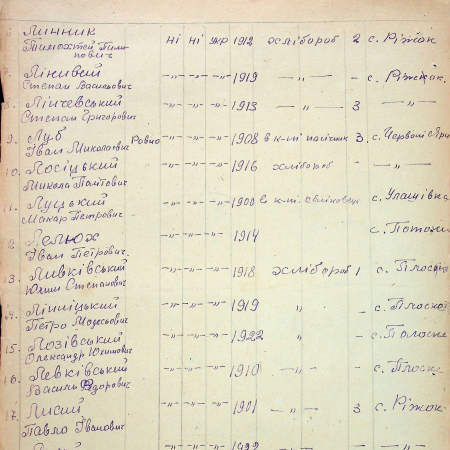 6 Линник
Тимохтей Тим- ні ні укр 1912 хлібороб 2 с. Ріжок
пович
7. Лінивий
Степан Васильович -"- -"- -"- 1919 -"- - с. Ріжок.
8. Лінчевський
Степан Григорович -"- -"- -"- 1913 -"- 3 -"-
9. Луб
Іван Миколович Ровно -"- -"- -"- 1908 в к-ті пасічник 3 с. Червоні
10. Лосіцький
Микола -"- -"- -"- 1916 хлібороб - -"-
11. Луцький
Макар Петрович -"- -"- -"- 1900 в к-ті с. Улашівка
12. Лемюх
Іван Петрович -"- -"- -"- 1914 с. Поточ
13. Ливківський
Юхим Степанович -"- -"- -"- 1918 хлібороб 1 с. Плоска
14. Лінніцький
Петро Модесьович -"- -"- -"- 1919 " - с. Плоскої
15. Лозівський
Олександр Юхимович -"- -"- -"- 1922 " - с. Плоске
16. Левківський
Василь Ф -"- -"- -"- 1910 -"- - с. Плоске
17. Лисий
Павло Іванович -"- -"- -"- 1901 -"- 3 с. Ріжок